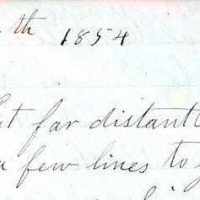 th 1854
t far distant
a few lines to